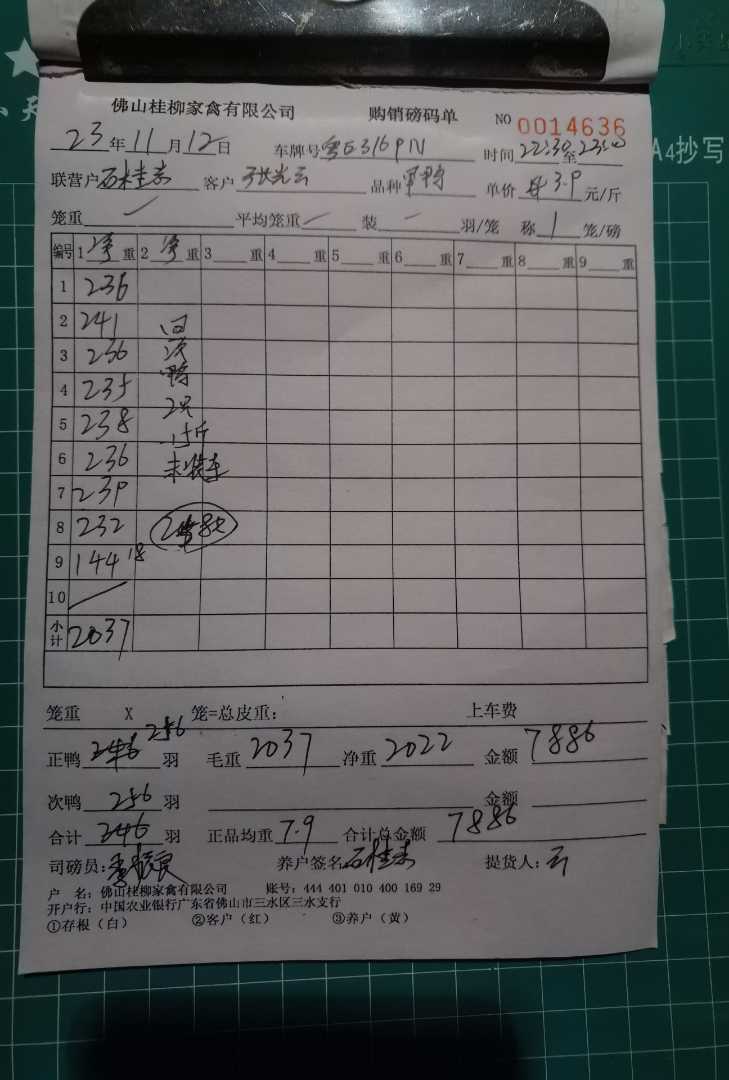 佛山桂柳家禽有限公司 购销磅码单 NO 0014636
23年11月12日 车牌号粤E316PN 时间22:30至23:00
A4抄写
联营户石桂志 客户张光云 品种 单价 3.9元/斤
笼重 平均笼重 装 羽/笼 称1笼/磅
编号 1净重 2净重 3重 4重 5重 6重 7重 8重 9重
1 236
2 241 回
3 236 次
4 235 鸭
5 238 2只
15斤
6 236 未装车
7 239
8 232
9 144 18
10
小计 2037
笼重 X 笼=总皮重: 上车费
256
正鸭 羽 毛重 2037 净重 2022 金额 7886
次鸭 256 羽 金额
合计 246 羽 正品均重 7.9 合计总金额 7886
司磅员: 养户签名石桂志 提货人:云
户 名: 佛山桂柳家禽有限公司 账号: 444 401 010 400 169 29
开户行: 中国农业银行广东省佛山市三水区三水支行
①存根(白) ②客户(红) ③养户(黄)